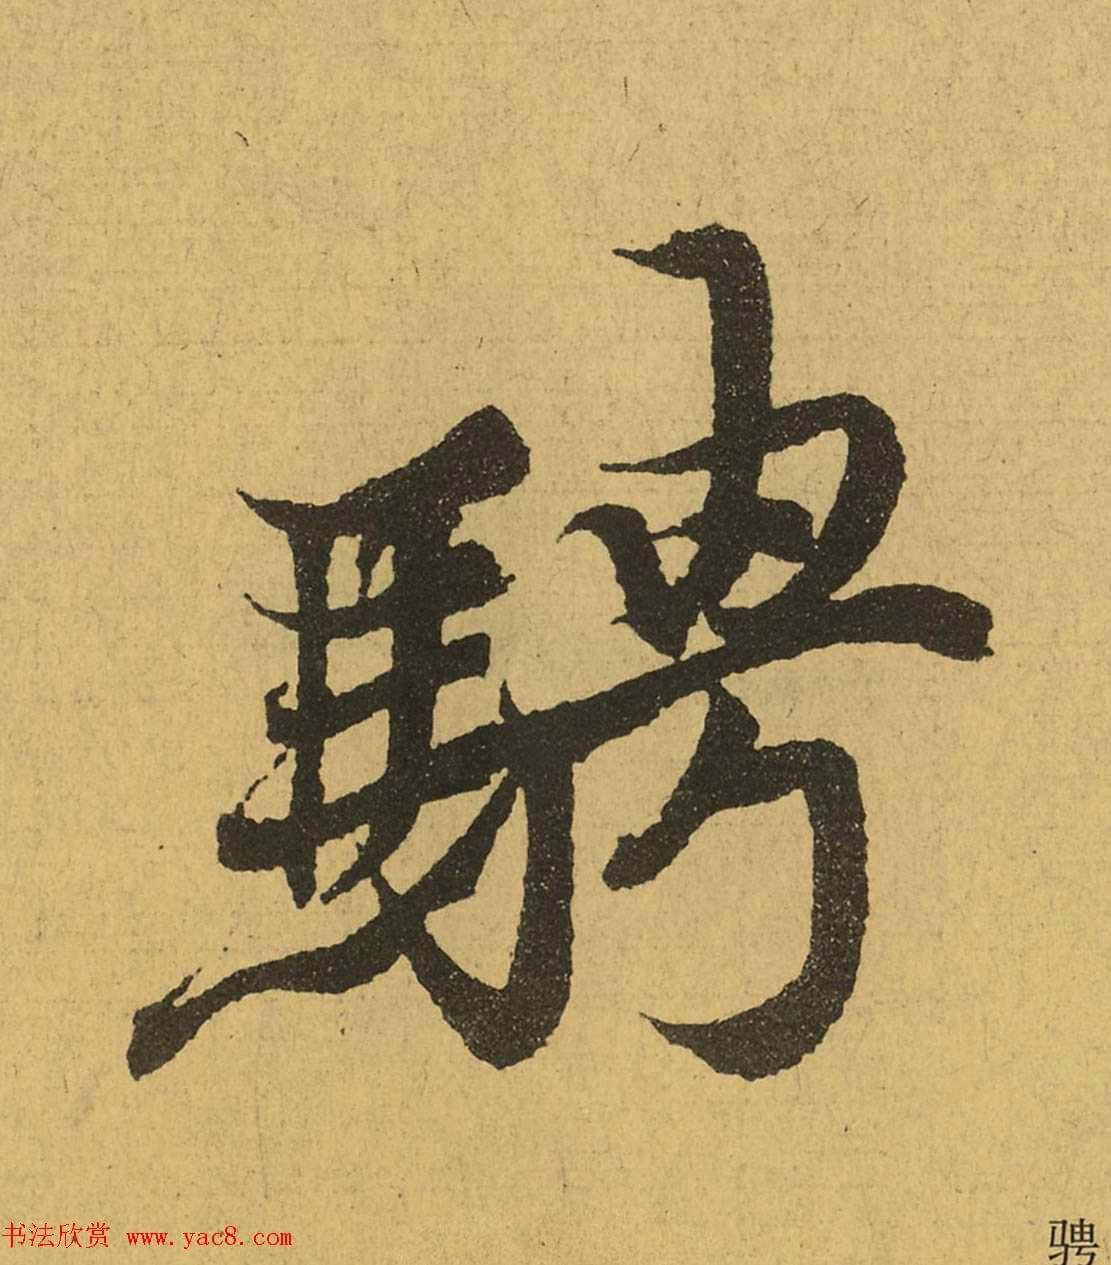 騁
书法欣赏 www.yac8.com
骋